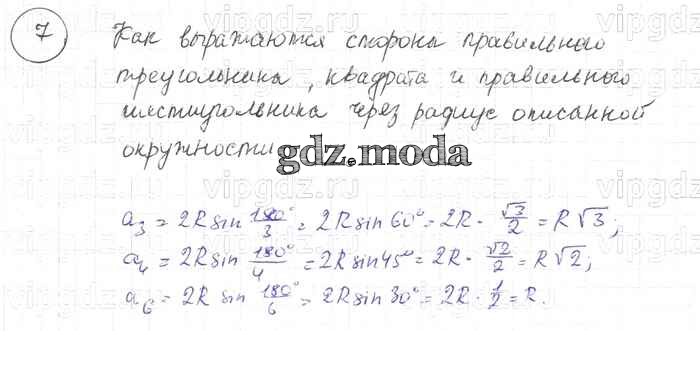 7
Как выражаются стороны правильного
треугольника, квадрата и правильного
шестиугольника через радиус описанной
окружности
gdz.moda
a₃ = 2R sin 180°/3 = 2R sin 60° = 2R · √3/2 = R√3;
a₄ = 2R sin 180°/4 = 2R sin 45° = 2R · √2/2 = R√2;
a₆ = 2R sin 180°/6 = 2R sin 30° = 2R · 1/2 = R.